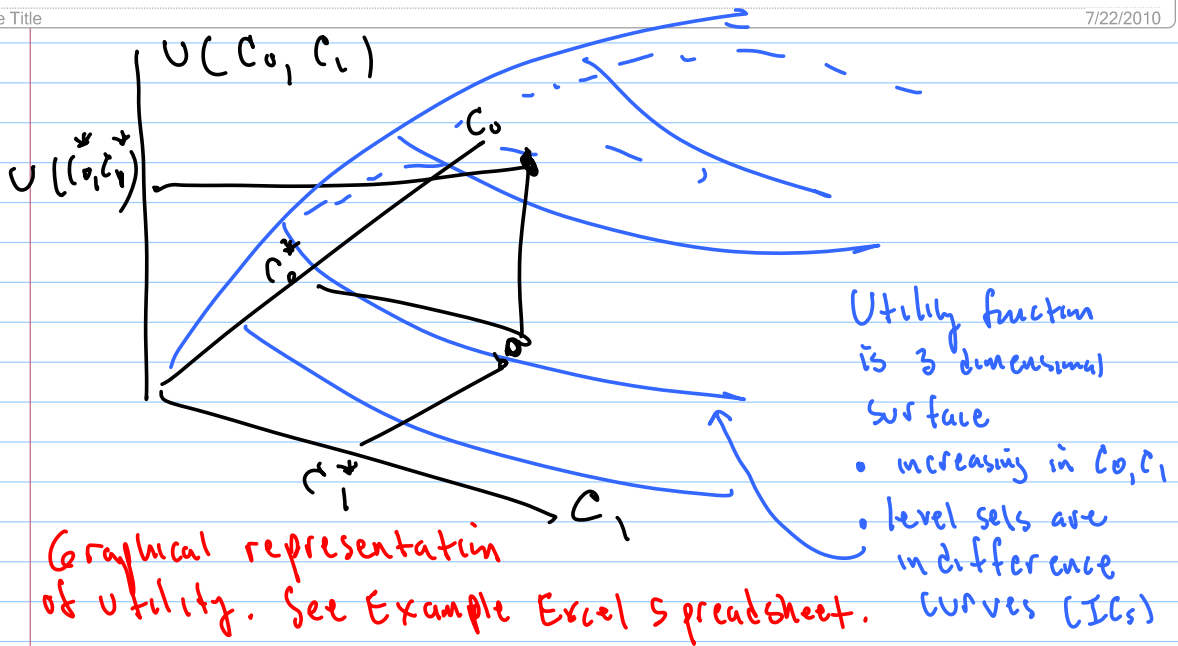 e Title
7/22/2010
U(C₀, C₁)
U(C₀*, C₁*)
C₀
C₀*
C₁*
C₁
Utility function
is 3 dimensional
surface
• increasing in C₀, C₁
• level sets are
indifference
curves (ICs)
Graphical representation
of utility. See Example Excel spreadsheet.